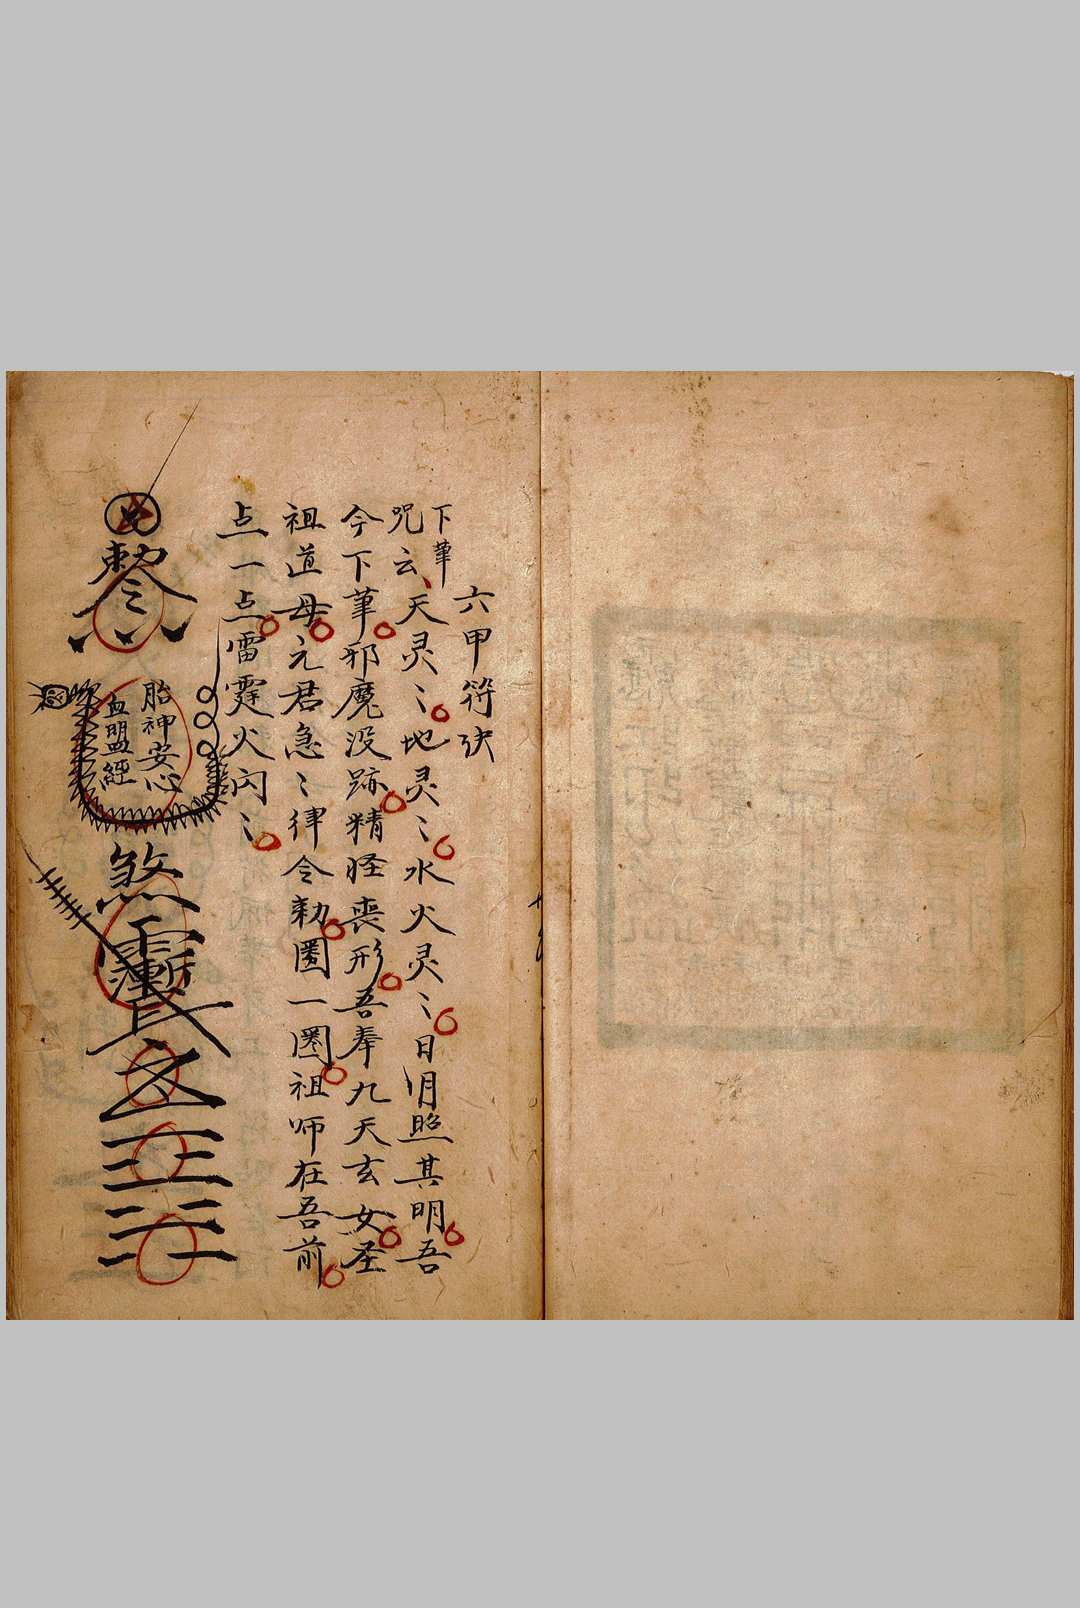 六甲符诀
下筆
咒云天灵〻地灵〻水火灵〻日月照其明吾
今下筆邪魔没跡精怪喪形吾奉九天玄女圣
祖道母元君急〻律令勅圏一圏祖师在吾前
点一点雷霆火闪〻
勅令
胎神安心
血盟經
煞